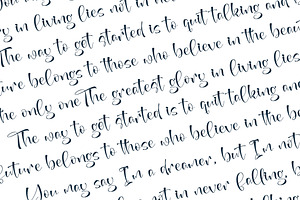 y in living lies not in ne
The way to get started is to quit talking and
uture belongs to those who believe in the beau
he only one The greatest glory in living lies
The way to get started is to quit talking and
uture belongs to those who believe in the be
You may say I'm a dreamer, but I'm not
not in never falling, b